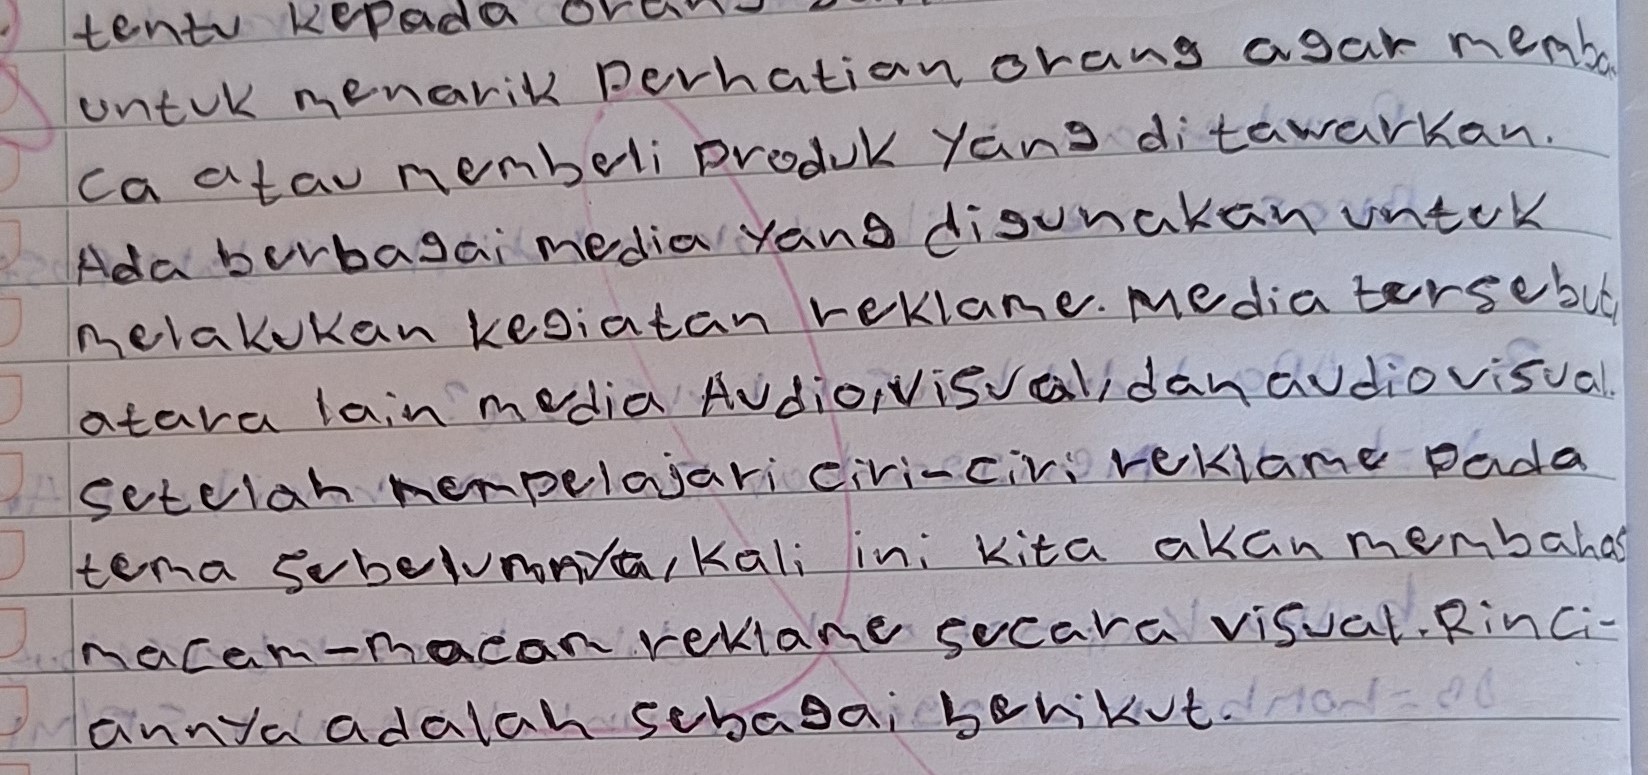 tentu kepada orang
untuk menarik perhatian orang agar memba
ca atau membeli produk yang ditawarkan.
Ada berbagai media yang digunakan untuk
melakukan kegiatan reklame. Media tersebut,
atara lain media Audio, visual, dan audiovisual.
setelah mempelajari ciri-ciri reklame pada
tema sebelumnya, kali ini kita akan membahas
macam-macam reklame secara visual. Rinci-
annya adalah sebagai berikut.